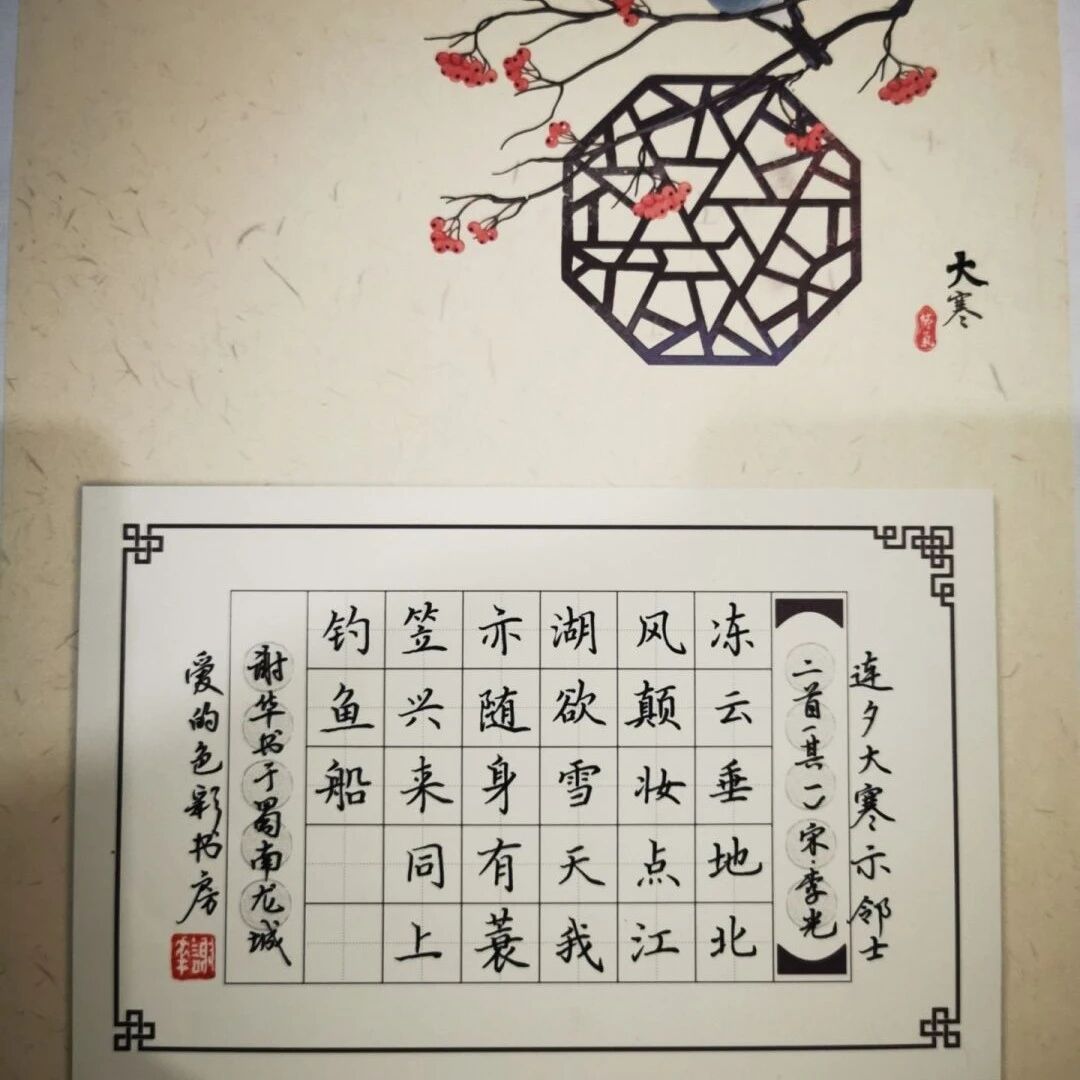 大寒
连夕大寒示邻士
二首(其一)宋·李光
冻云垂地北
风颠妆点江
湖欲雪天我
亦随身有蓑
笠兴来同上
钓鱼船
谢华书于蜀南龙城
爱的色彩书房